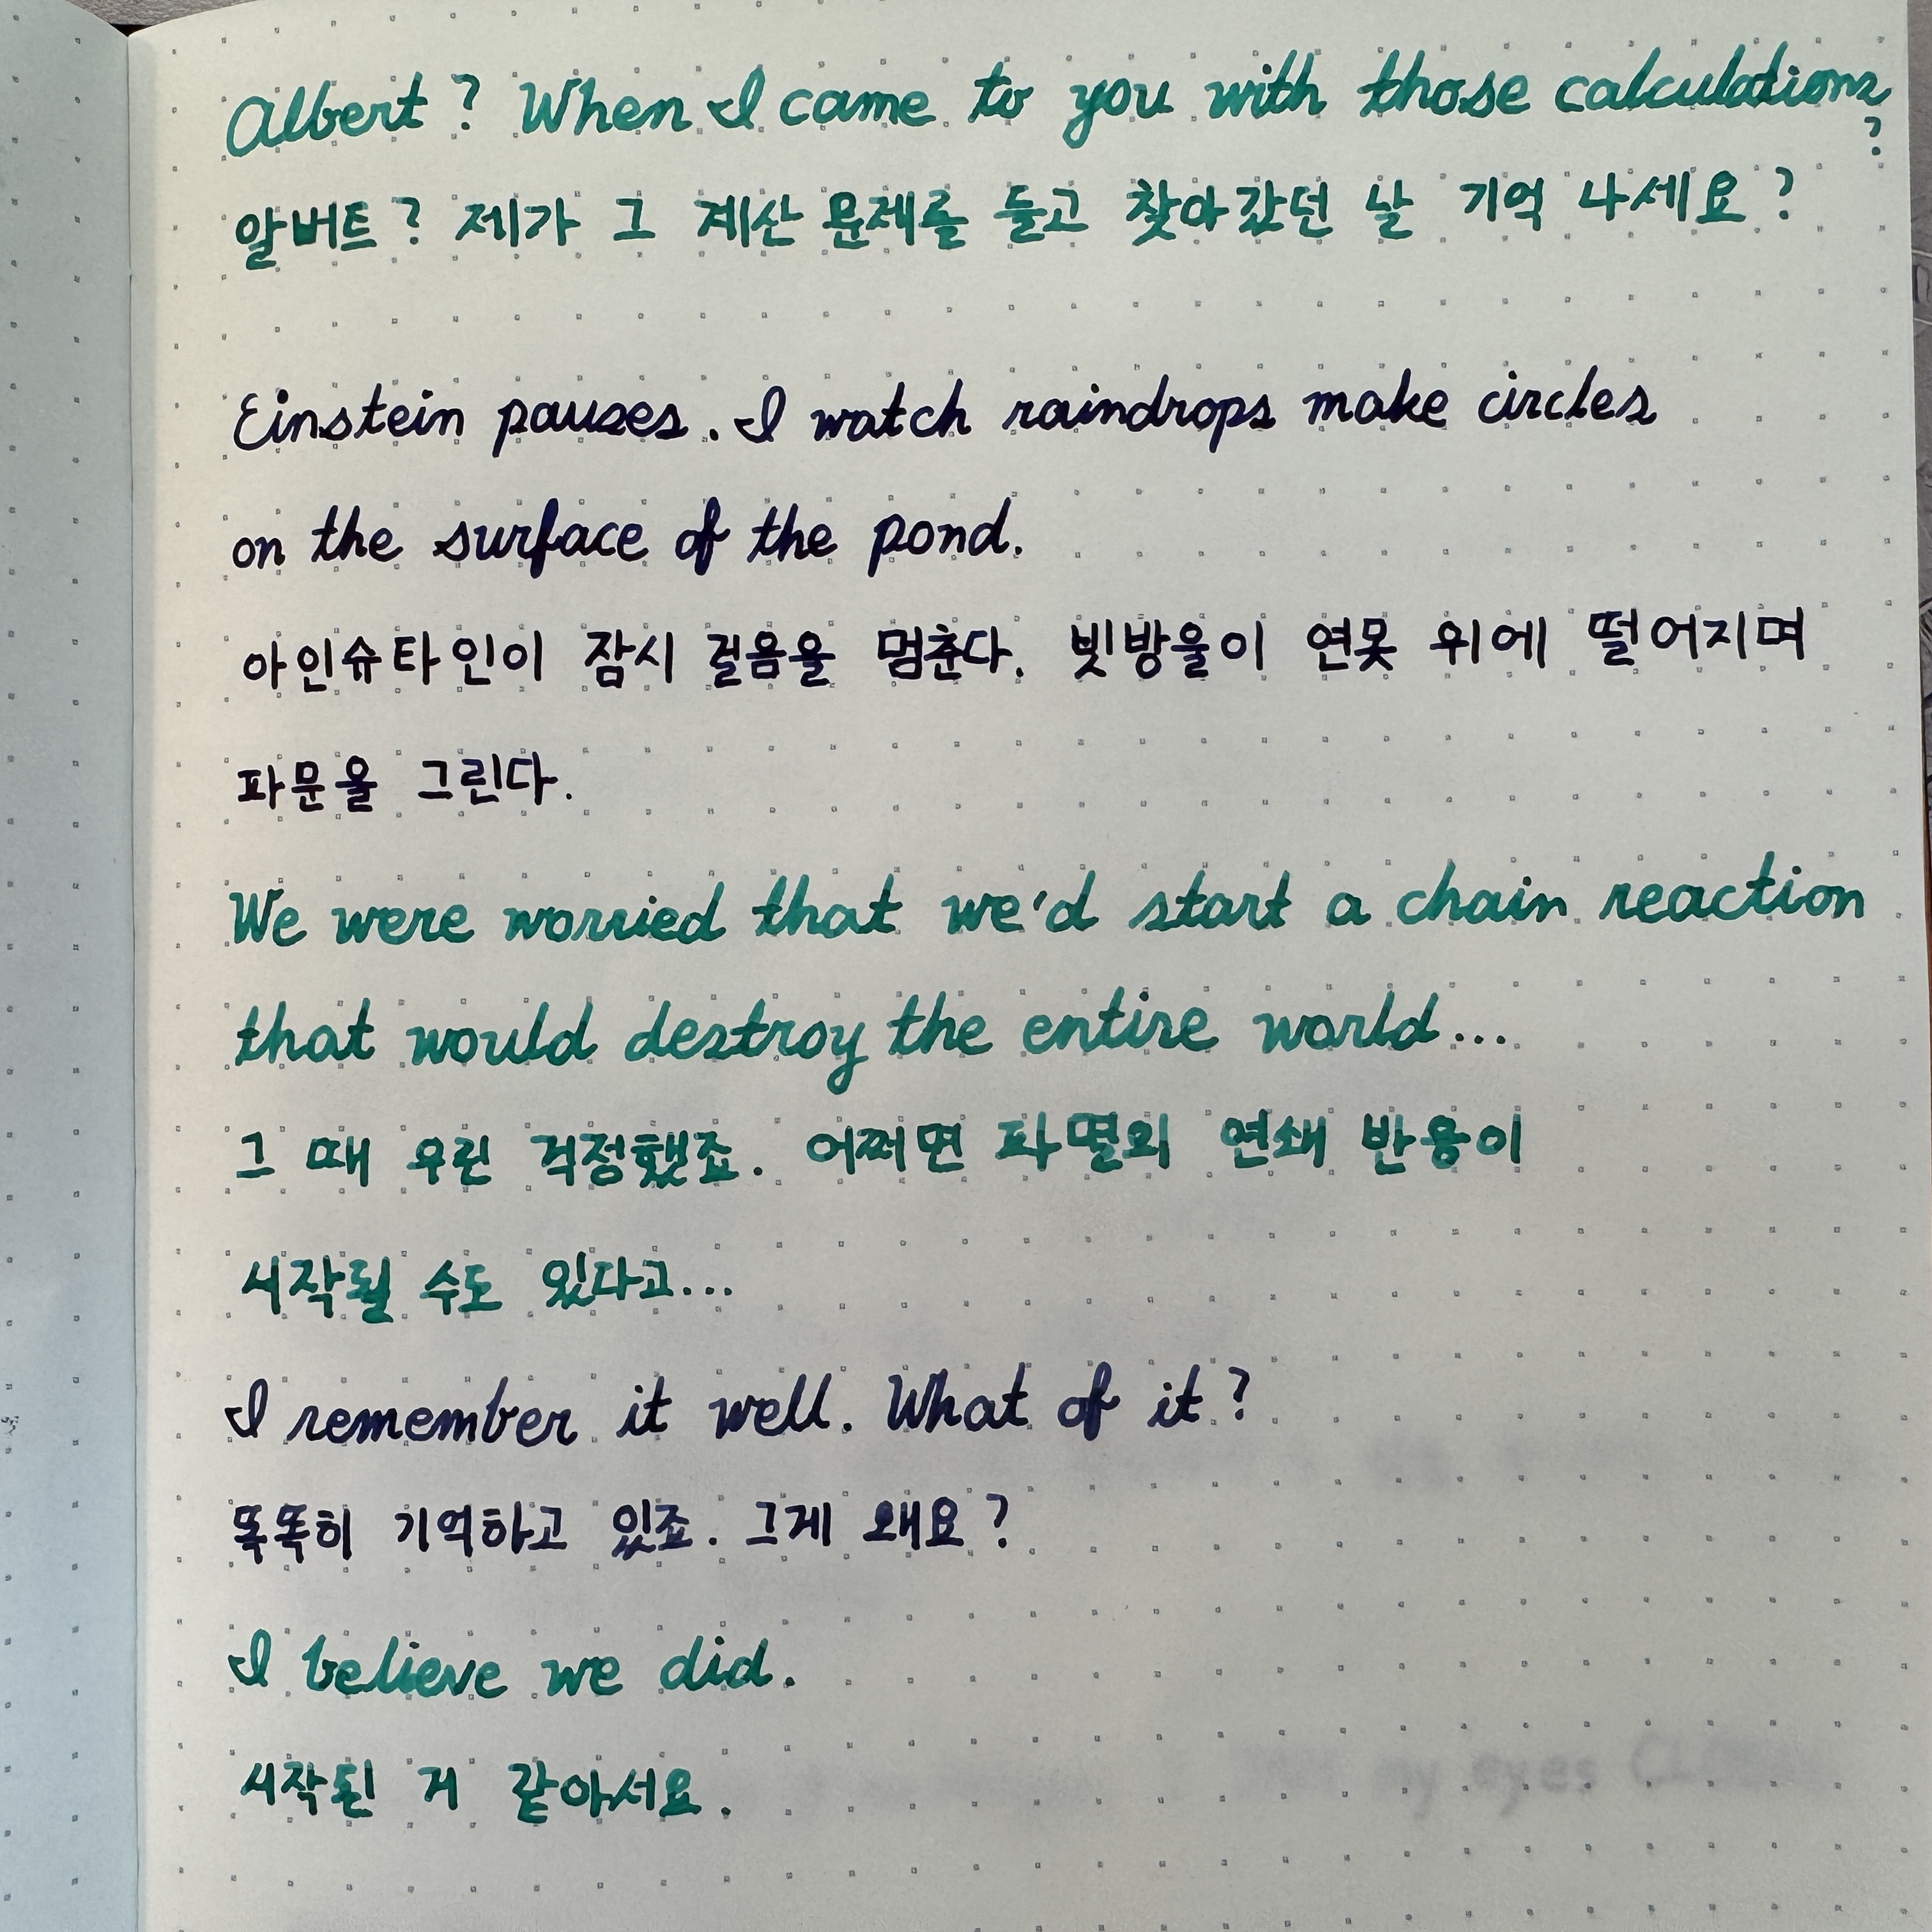 Albert? When I came to you with those calculations
?
알버트? 제가 그 계산 문제를 들고 찾아갔던 날 기억 나세요?
Einstein pauses. I watch raindrops make circles
on the surface of the pond.
아인슈타인이 잠시 걸음을 멈춘다. 빗방울이 연못 위에 떨어지며
파문을 그린다.
We were worried that we'd start a chain reaction
that would destroy the entire world...
그 때 우린 걱정했죠. 어쩌면 파멸의 연쇄 반응이
시작될 수도 있다고...
I remember it well. What of it?
똑똑히 기억하고 있죠. 그게 왜요?
I believe we did.
시작된 거 같아서요.